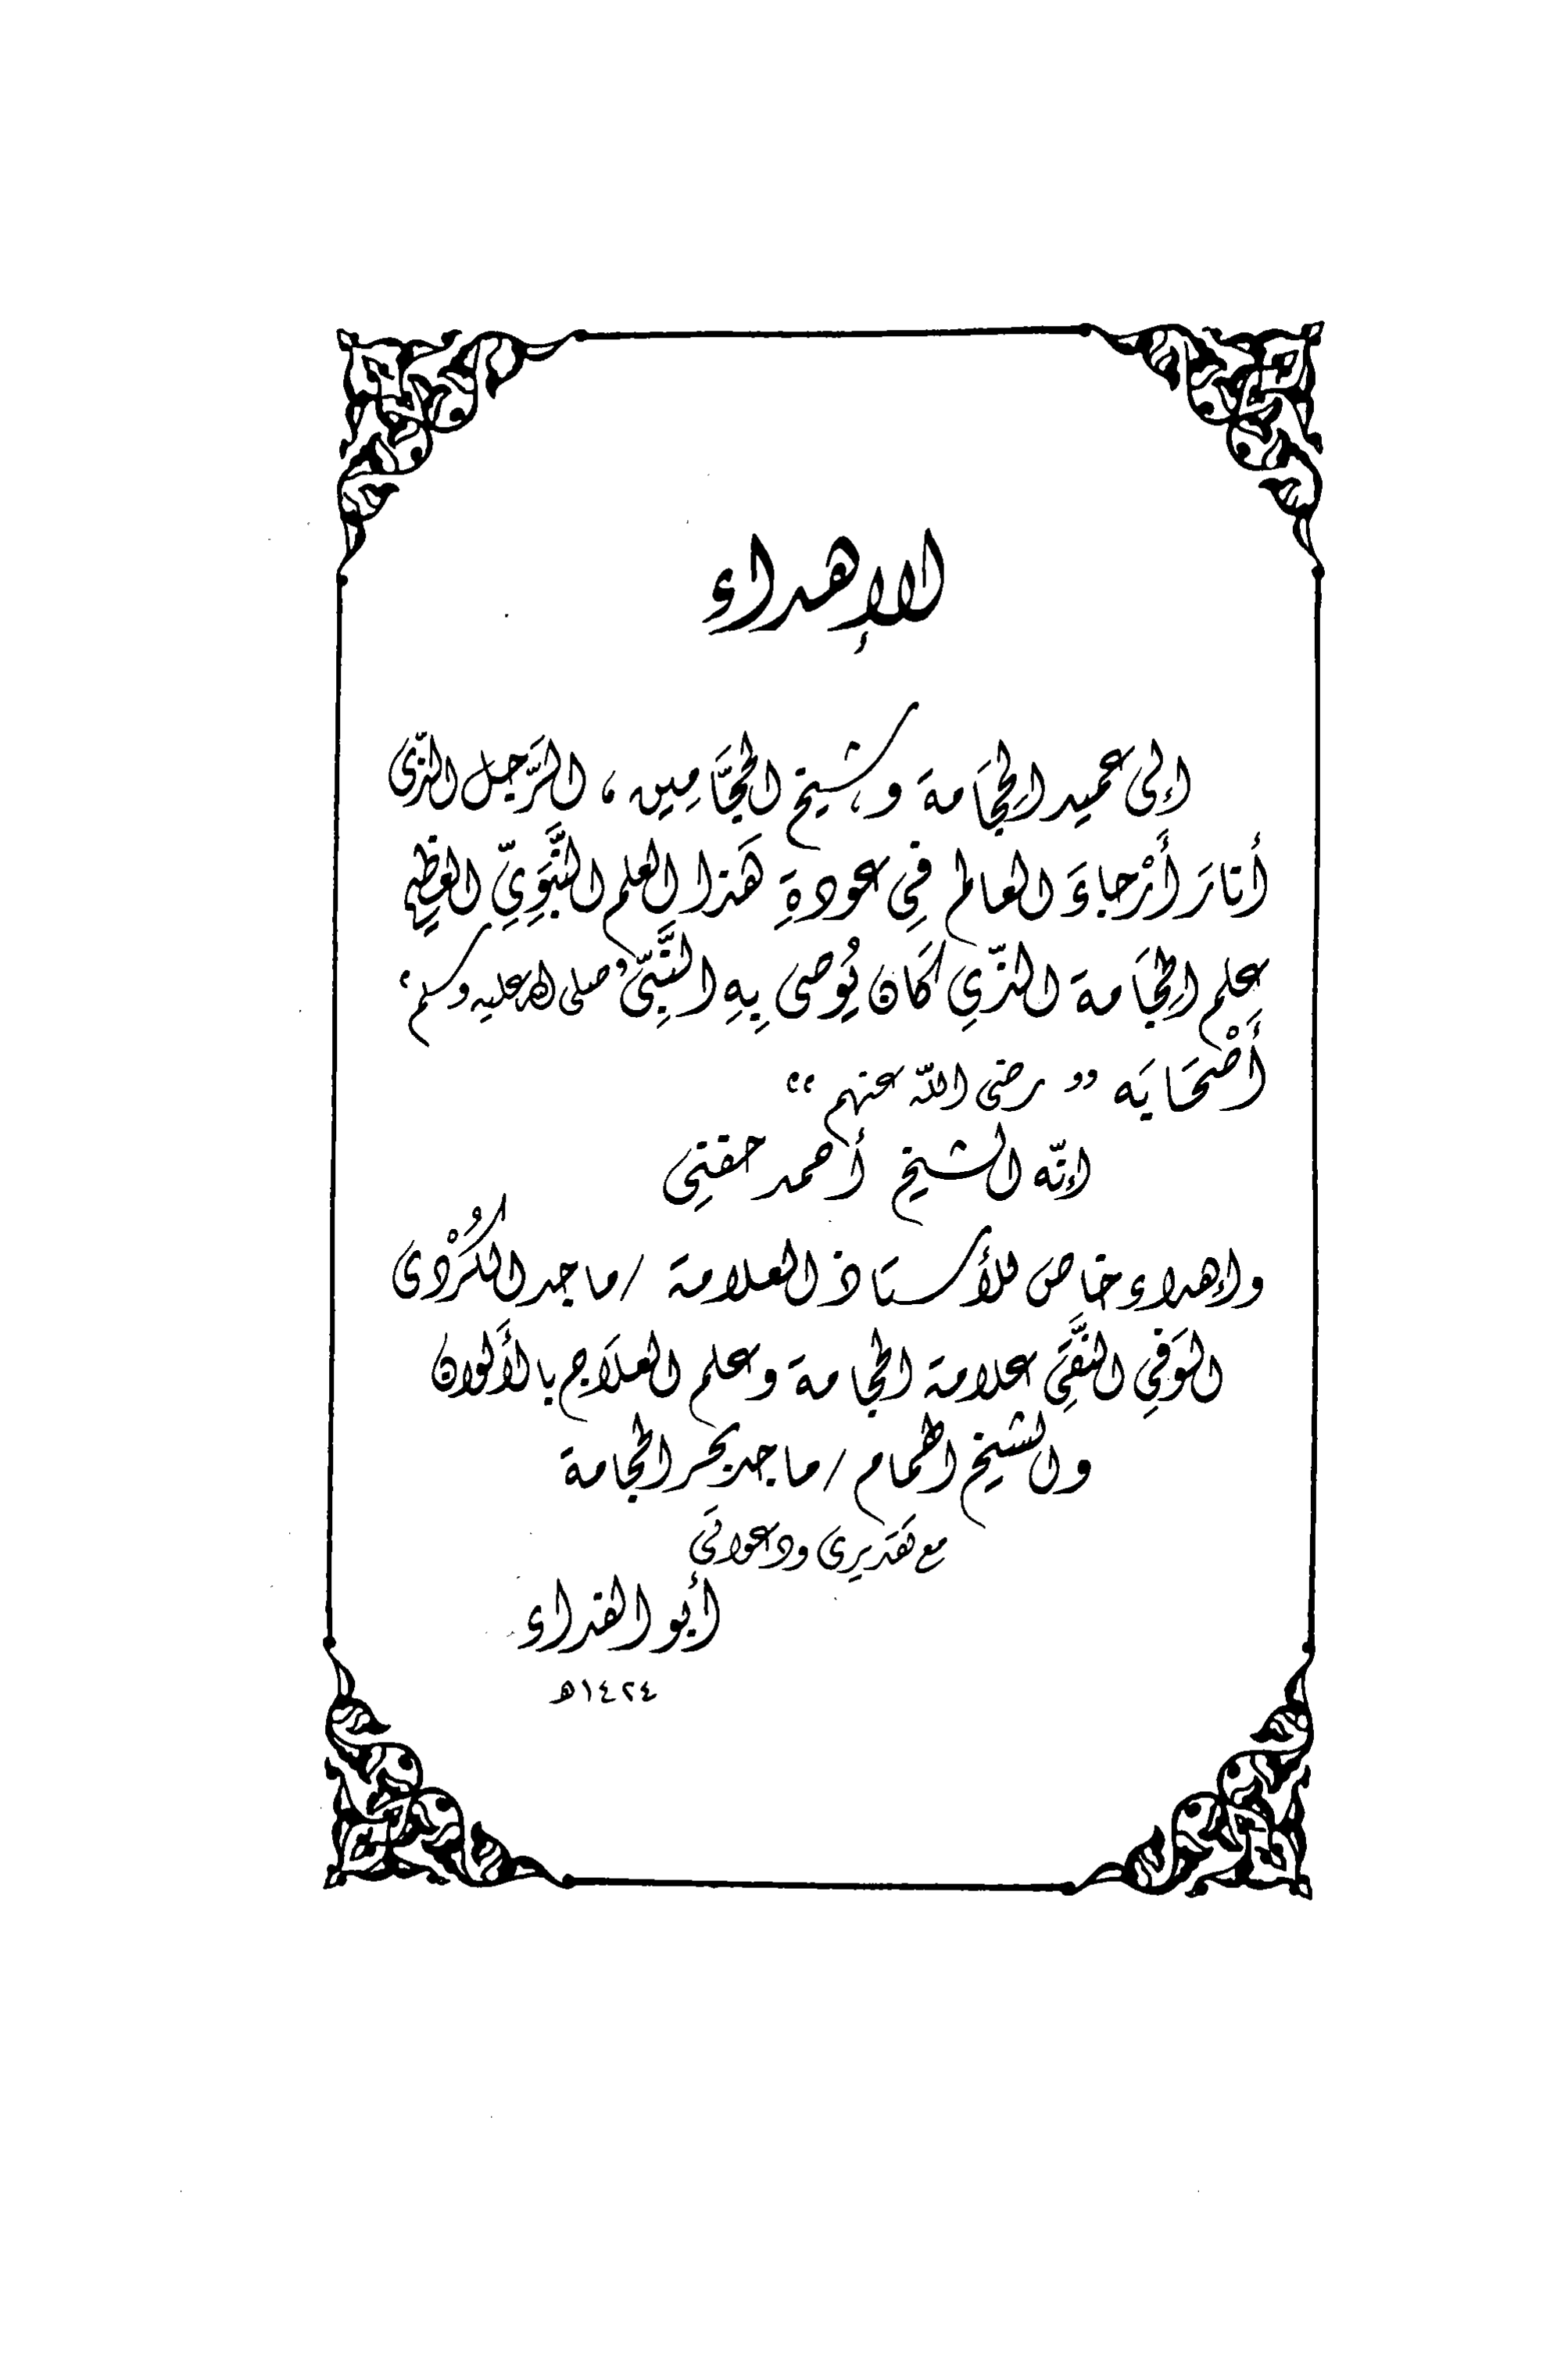 الإهداء
إلى عميد الحِجَامة وشيخ الحجَّامِين، الرَّجل الذّى
أنارَ أَرْجاءَ العالم فِي عودةِ هَذا العلم النَّبَوِيّ العظِيم
علم الحِجَامة الذّي كَان يُوصى بِهِ النَّبِىّ "صلى الله عليه وسلم"
أَصْحَابَه "رضى اللّه عنهم"
إنّه الشيخ أحمد حفنِى
وإهداء خاص للأستَاذ العلامة / ماجد الكُرْدى
الوَفِي النَّقِىَ علامة الحجامة وعلم العلاَج بالأَلوان
والشيخ الهمام / ماجد بحر الحجامة
مع تقَديرى ودعواتَى
أبو الفداء
١٤٢٤هـ